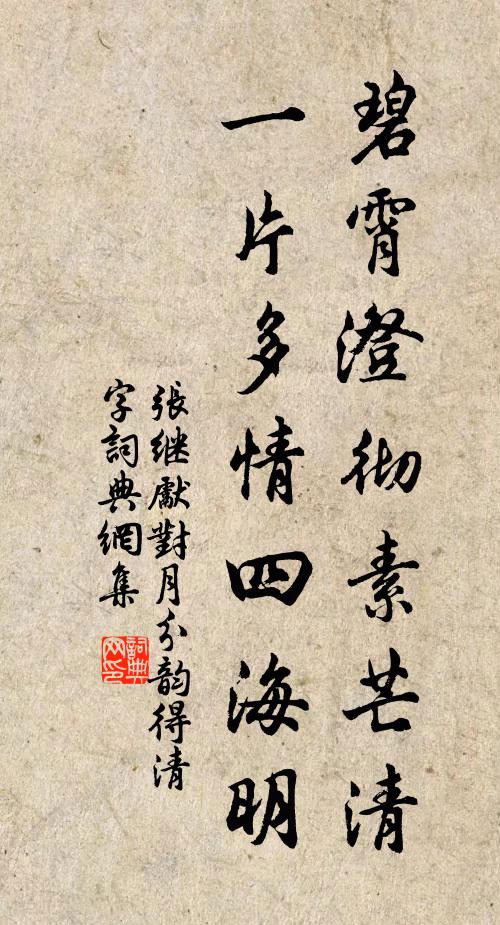 碧霄澄彻素芒清
一片多情四海明
張继獻對月分韵得清
字詞典網集
詞典网印